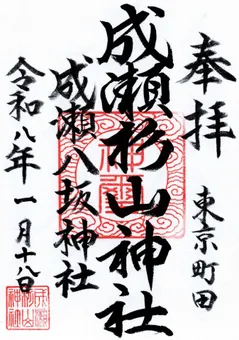 奉拝
東京町田
成瀬杉山神社
成瀬八坂神社
令和八年一月十八日
成瀬
杉山
神社